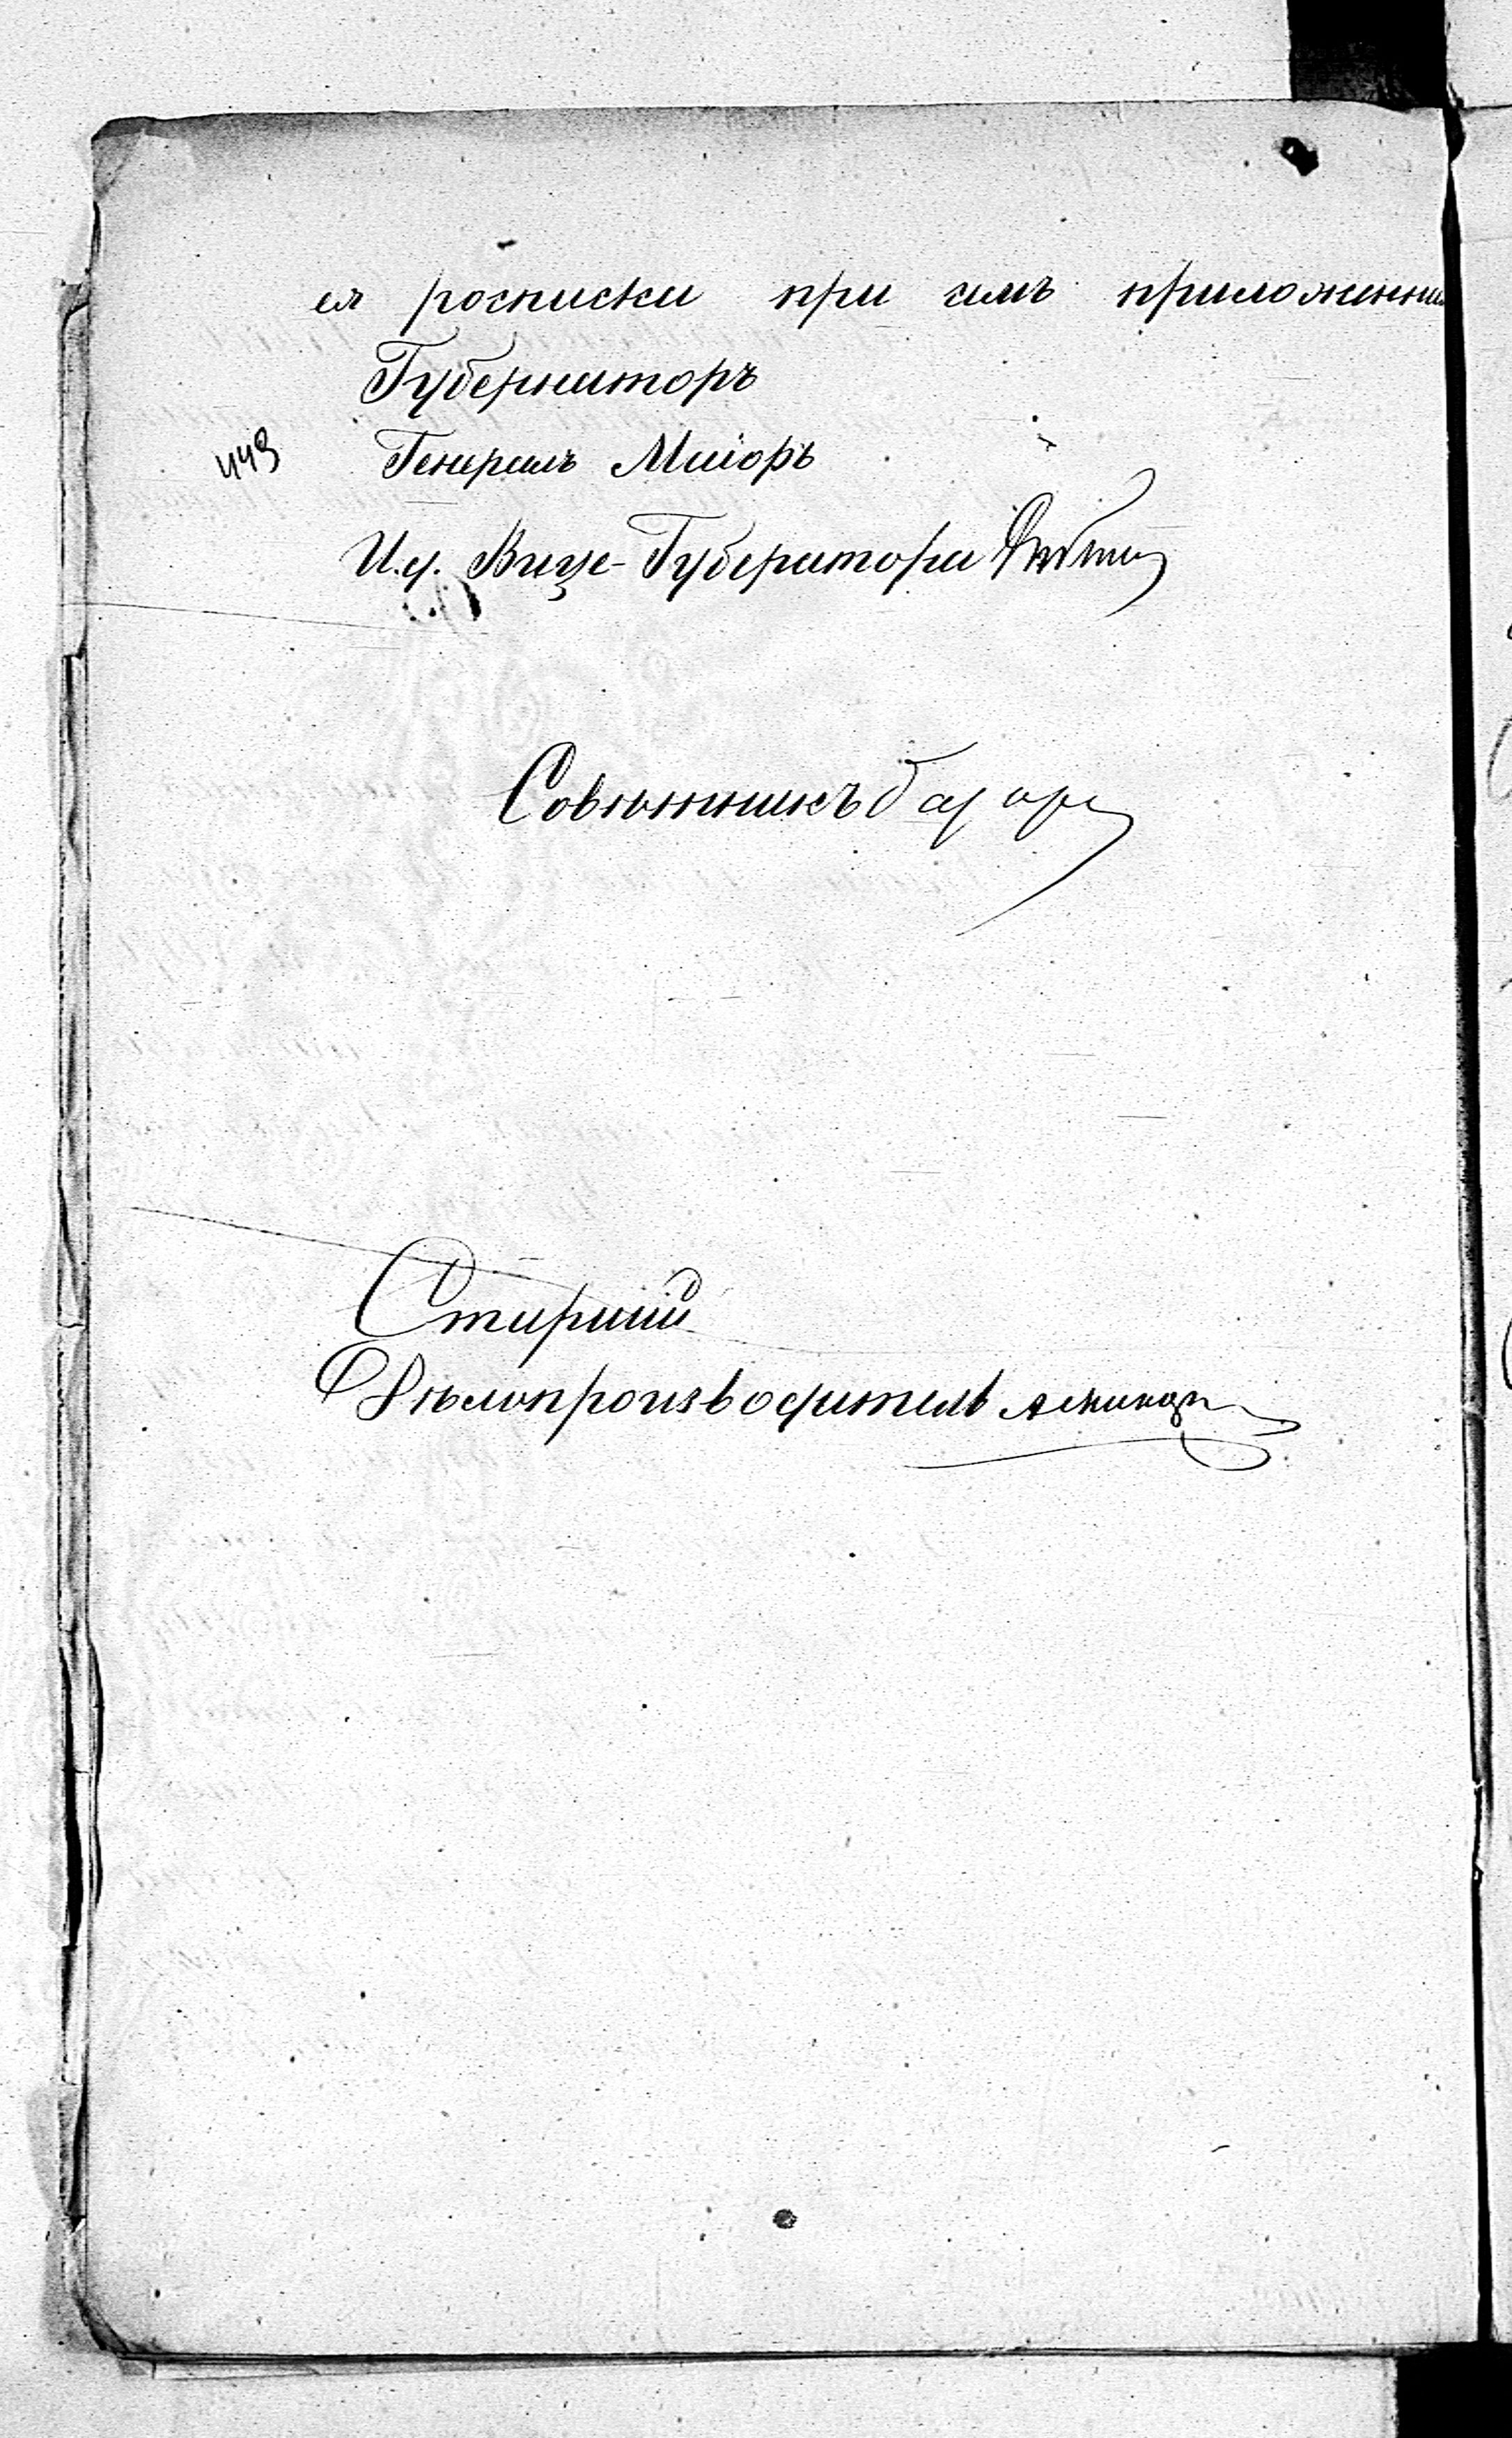 ея росписки при семъ приложенни
Губернаторъ
443
Генералъ Маіоръ
И. д. Вице-Губернатора
Совѣтникъ
Старшій
Дѣлопроизводитель